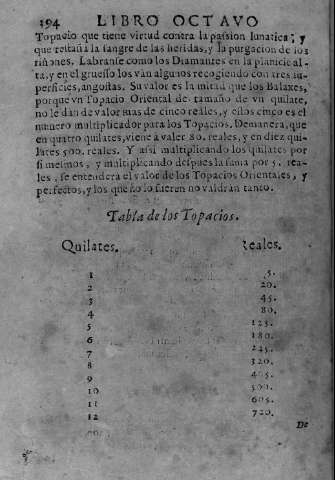 194 LIBRO OCTAVO
Topacio que tiene virtud contra la passion lunatica; y
que restaña la sangre de las heridas, y la purgacion de los
riñones. Labranse como los Diamantes en la planicie al-
ta, y en el gruesso los van algunos recogiendo con tres su-
perficies, angostas. Su valor es la mitad que los Balaxes,
porque vn Topacio Oriental de tamaño de vn quilate,
no le dan de valor mas de cinco reales, y estos cinco es el
numero multiplicador para los Topacios. De manera, que
en quatro quilates, viene à valer 80. reales, y en diez qui-
lates 500. reales. Y assi multiplicando los quilates por
si mesmos, y multiplicando despues la suma por 5. rea-
les, se entenderà el valor de los Topacios Orientales, y
perfectos, y los que no lo fueren no valdran tanto.
Tabla de los Topacios.
Quilates. Reales.
1 5.
2 20.
3 45.
4 80.
5 125.
6 180.
7 245.
8 320.
9 405.
10 500.
11 605.
12 720.
De